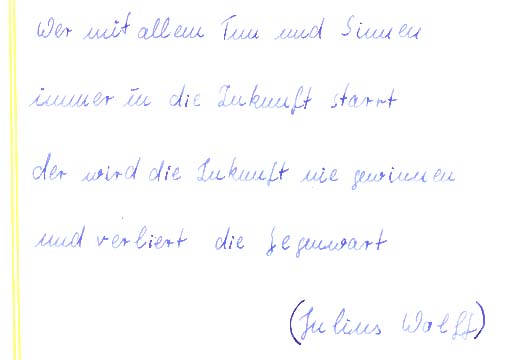 Wer mit allem Tun und Sinnen
immer in die Zukunft starrt
der wird die Zukunft nie gewinnen
und verliert die Gegenwart
(Julius Wolff)